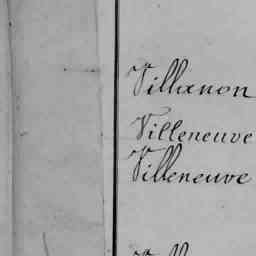 Villanon
Villeneuve
Villeneuve